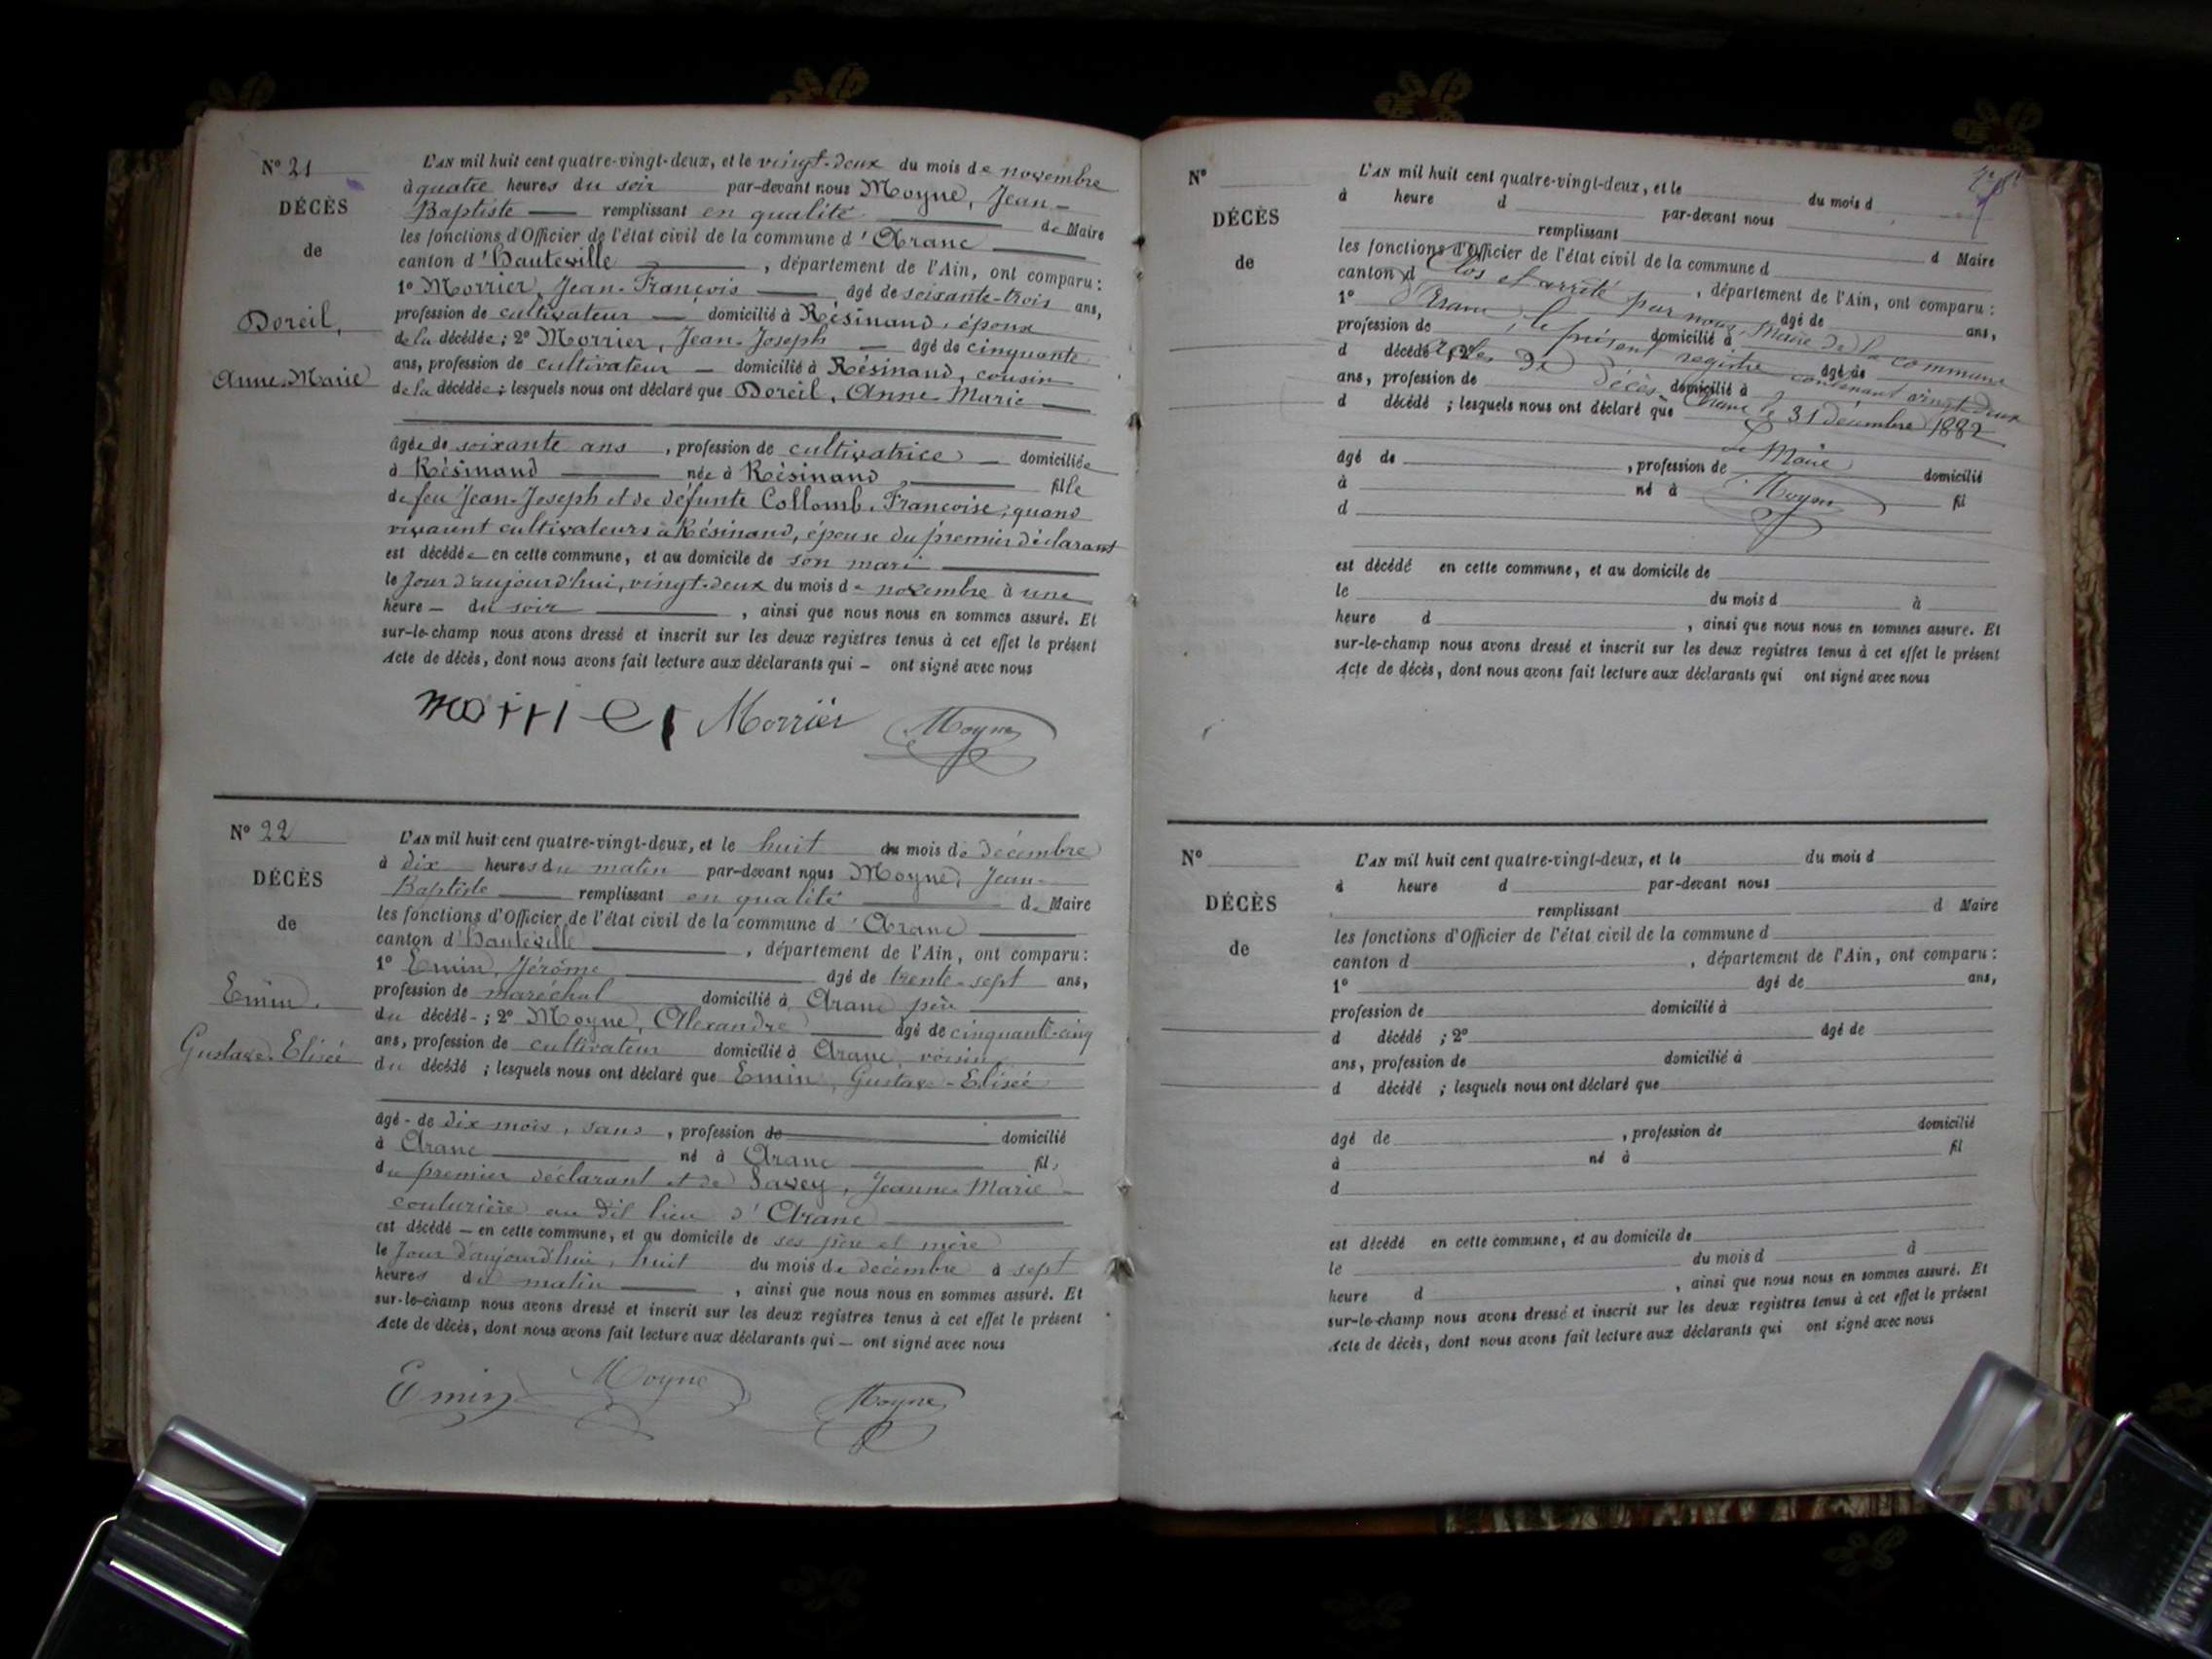 N° 21
DÉCÈS
de
Doreil,
Anne-Marie
L'AN mil huit cent quatre-vingt-deux, et le vingt-deux du mois de novembre
à quatre heures du soir par-devant nous Moyne, Jean-
Baptiste remplissant en qualité de Maire
les fonctions d'Officier de l'état civil de la commune d'Aranc
canton d'Hauteville, département de l'Ain, ont comparu :
1° Morrier, Jean-François âgé de soixante-trois ans,
profession de cultivateur domicilié à Résinand, époux
de la décédée ; 2° Morrier, Jean-Joseph âgé de cinquante
ans, profession de cultivateur domicilié à Résinand, cousin
de la décédée ; lesquels nous ont déclaré que Doreil, Anne-Marie
âgée de soixante ans, profession de cultivatrice domiciliée
à Résinand née à Résinand fille
de feu Jean-Joseph et de défunte Collomb, Françoise, quand
vivaient cultivateurs à Résinand, épouse du premier déclarant
est décédée en cette commune, et au domicile de son mari
le jour d'aujourd'hui, vingt-deux du mois de novembre à une
heure du soir, ainsi que nous nous en sommes assuré. Et
sur-le-champ nous avons dressé et inscrit sur les deux registres tenus à cet effet le présent
Acte de décès, dont nous avons fait lecture aux déclarants qui ont signé avec nous
Morrier Morrier Moyne
N° 22
DÉCÈS
de
Emin,
Gustave-Elisée
L'AN mil huit cent quatre-vingt-deux, et le huit du mois de décembre
à dix heures du matin par-devant nous Moyne, Jean-
Baptiste remplissant en qualité de Maire
les fonctions d'Officier de l'état civil de la commune d'Aranc
canton d'Hauteville, département de l'Ain, ont comparu :
1° Emin, Jérôme âgé de trente-sept ans,
profession de maréchal domicilié à Aranc père
du décédé ; 2° Moyne, Alexandre âgé de cinquante-cinq
ans, profession de cultivateur domicilié à Aranc, voisin
du décédé ; lesquels nous ont déclaré que Emin, Gustave-Elisée
âgé de dix mois, sans, profession de domicilié
à Aranc né à Aranc fils
du premier déclarant et de Savey, Jeanne-Marie
couturière au dit lieu d'Aranc
est décédé en cette commune, et au domicile de ses père et mère
le jour d'aujourd'hui, huit du mois de décembre à sept
heures du matin, ainsi que nous nous en sommes assuré. Et
sur-le-champ nous avons dressé et inscrit sur les deux registres tenus à cet effet le présent
Acte de décès, dont nous avons fait lecture aux déclarants qui ont signé avec nous
Emin Moyne Moyne
N°
DÉCÈS
de
L'AN mil huit cent quatre-vingt-deux, et le du mois d
à heure d par-devant nous
remplissant d Maire
les fonctions d'Officier de l'état civil de la commune d
canton d , département de l'Ain, ont comparu :
1° âgé de ans,
profession de domicilié à
d décédé ; 2° âgé de
ans, profession de domicilié à
d décédé ; lesquels nous ont déclaré que
Clos et arrêté par nous, Maire de la commune
d'Aranc, le présent registre contenant vingt-deux
actes de décès. Aranc le 31 décembre 1882
Le Maire
Moyne
âgé de , profession de domicilié
à né à fil
d
est décédé en cette commune, et au domicile de
le du mois d à
heure d , ainsi que nous nous en sommes assuré. Et
sur-le-champ nous avons dressé et inscrit sur les deux registres tenus à cet effet le présent
Acte de décès, dont nous avons fait lecture aux déclarants qui ont signé avec nous
N°
DÉCÈS
de
L'AN mil huit cent quatre-vingt-deux, et le du mois d
à heure d par-devant nous
remplissant d Maire
les fonctions d'Officier de l'état civil de la commune d
canton d , département de l'Ain, ont comparu :
1° âgé de ans,
profession de domicilié à
d décédé ; 2° âgé de
ans, profession de domicilié à
d décédé ; lesquels nous ont déclaré que
âgé de , profession de domicilié
à né à fil
d
est décédé en cette commune, et au domicile de
le du mois d à
heure d , ainsi que nous nous en sommes assuré. Et
sur-le-champ nous avons dressé et inscrit sur les deux registres tenus à cet effet le présent
Acte de décès, dont nous avons fait lecture aux déclarants qui ont signé avec nous